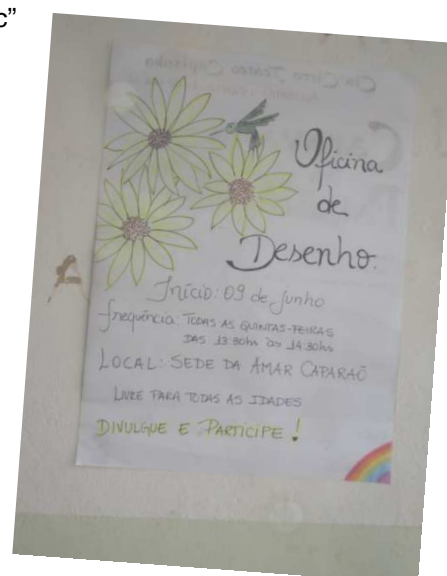 c”
Oficina
de
Desenho.
Início: 09 de junho
frequência: TODAS AS QUINTAS-FEIRAS
DAS 13:30hs às 14:30hs
LOCAL: SEDE DA AMAR CAPARAÓ
LIVRE PARA TODAS AS IDADES
DIVULGUE E PARTICIPE!